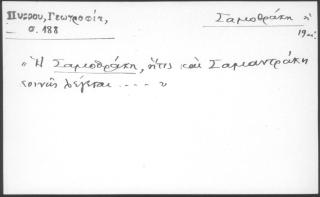 Πύρρου, Γεωγραφία,
σ. 188
Σαμοθράκη ἡ
19
"Ἡ Σαμοθράκη, ἥτις καὶ Σαμαντράκη
κοινῶς λέγεται .... "